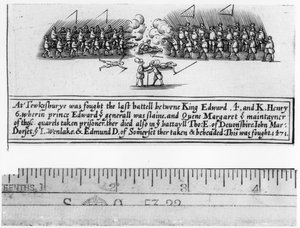 At Tewkesburye was fought the last battell betwene King Edward .4. and K. Henry
6. wherin prince Edward ye generall was slaine, and Quene Margaret ye maintayner
of thys quarels taken prisoner. ther died also in ye battayll Tho: E. of Devonshire, Iohn Mar:
Dorset, & L. Wenlake. & Edmund D. of Somerset ther taken & beheaded. This was fought. 1471.
1
2
3
4